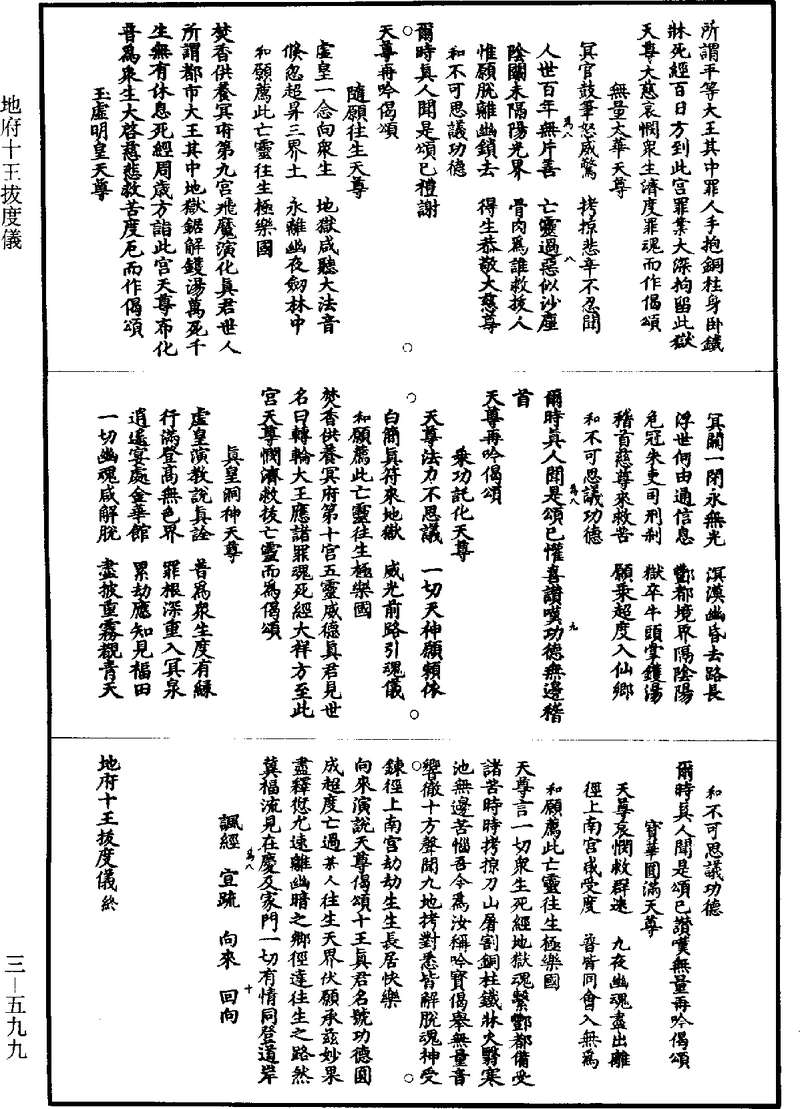 地府十王拔度儀
三—五九九
所謂平等大王其中罪人手抱銅柱身卧鐵
牀死經百日方到此宮罪業大深拘留此獄
天尊大慈哀憫衆生濟度罪魂而作偈頌
無量太華天尊
冥官鼓筆怒威驚　拷掠悲辛不忍聞
人世百年無片善　亡靈過惡似沙塵
陰關未隔陽光界　骨肉爲誰救拔人
惟願脫離幽鎖去　得生恭敬大慈尊
和不可思議功德
爾時真人聞是頌已禮謝
天尊再吟偈頌
隨願往生天尊
虛皇一念向衆生　地獄咸聽大法音
倏忽超昇三界土　永離幽夜劒林中
和願薦此亡靈往生極樂國
焚香供養冥府第九宮飛魔演化真君世人
所謂都市大王其中地獄鋸解鑊湯萬死千
生無有休息死經周歲方詣此宮天尊布化
普爲衆生大啓慈悲救苦度厄而作偈頌
玉虛明皇天尊
冥關一閉永無光　溟漠幽昏去路長
浮世何由通信息　酆都境界隔陰陽
危冠朱吏司刑制　獄卒牛頭掌鑊湯
稽首慈尊來救苦　願乘超度入仙鄉
和不可思議功德
爾時真人聞是頌已懽喜讚嘆功德無邊稽
首
天尊再吟偈頌
乘功託化天尊
天尊法力不思議　一切天神願頼依
白簡真符來地獄　威光前路引魂儀
和願薦此亡靈往生極樂國
焚香供養冥府第十宮五靈威德真君見世
名曰轉輪大王應諸罪魂死經大祥方至此
宮天尊憫濟救拔亡靈而爲偈頌
真皇洞神天尊
虛皇演教說真詮　普爲衆生度有緣
行滿登高無色界　罪根深重入冥泉
逍遙宴處金華館　累劫應知見福田
一切幽魂咸解脫　盡披重霧覩青天
和不可思議功德
爾時真人聞是頌已讚嘆無量再吟偈頌
寶華圓滿天尊
天尊哀憫救群迷　九夜幽魂盡出離
徑上南宮咸受度　普皆同會入無爲
和願薦此亡靈往生極樂國
天尊言一切衆生死經地獄魂繫酆都備受
諸苦時時拷掠刀山屠割銅柱鐵牀火翳寒
池無邊苦惱吾今爲汝稱吟寶偈舉無量音
響徹十方聲聞九地拷對悉皆解脫魂神受
鍊徑上南宮劫劫生生長居快樂
向來演說天尊偈頌十王真君名號功德圓
成超度亡過某人往生天界伏願承兹妙果
盡釋愆尤速離幽暗之鄉徑達往生之路然
冀福流見在慶及家門一切有情同登道岸
諷經　宣疏　向來　回向
地府十王拔度儀終